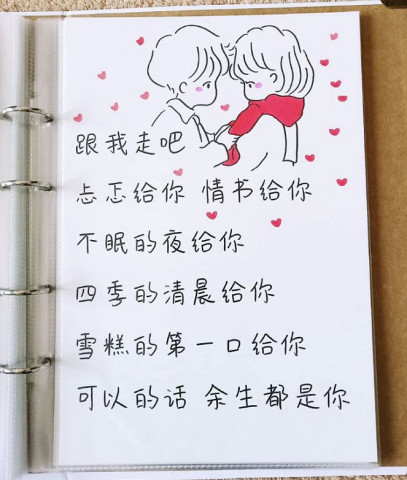 跟我走吧
忐忑给你 情书给你
不眠的夜给你
四季的清晨给你
雪糕的第一口给你
可以的话 余生都是你